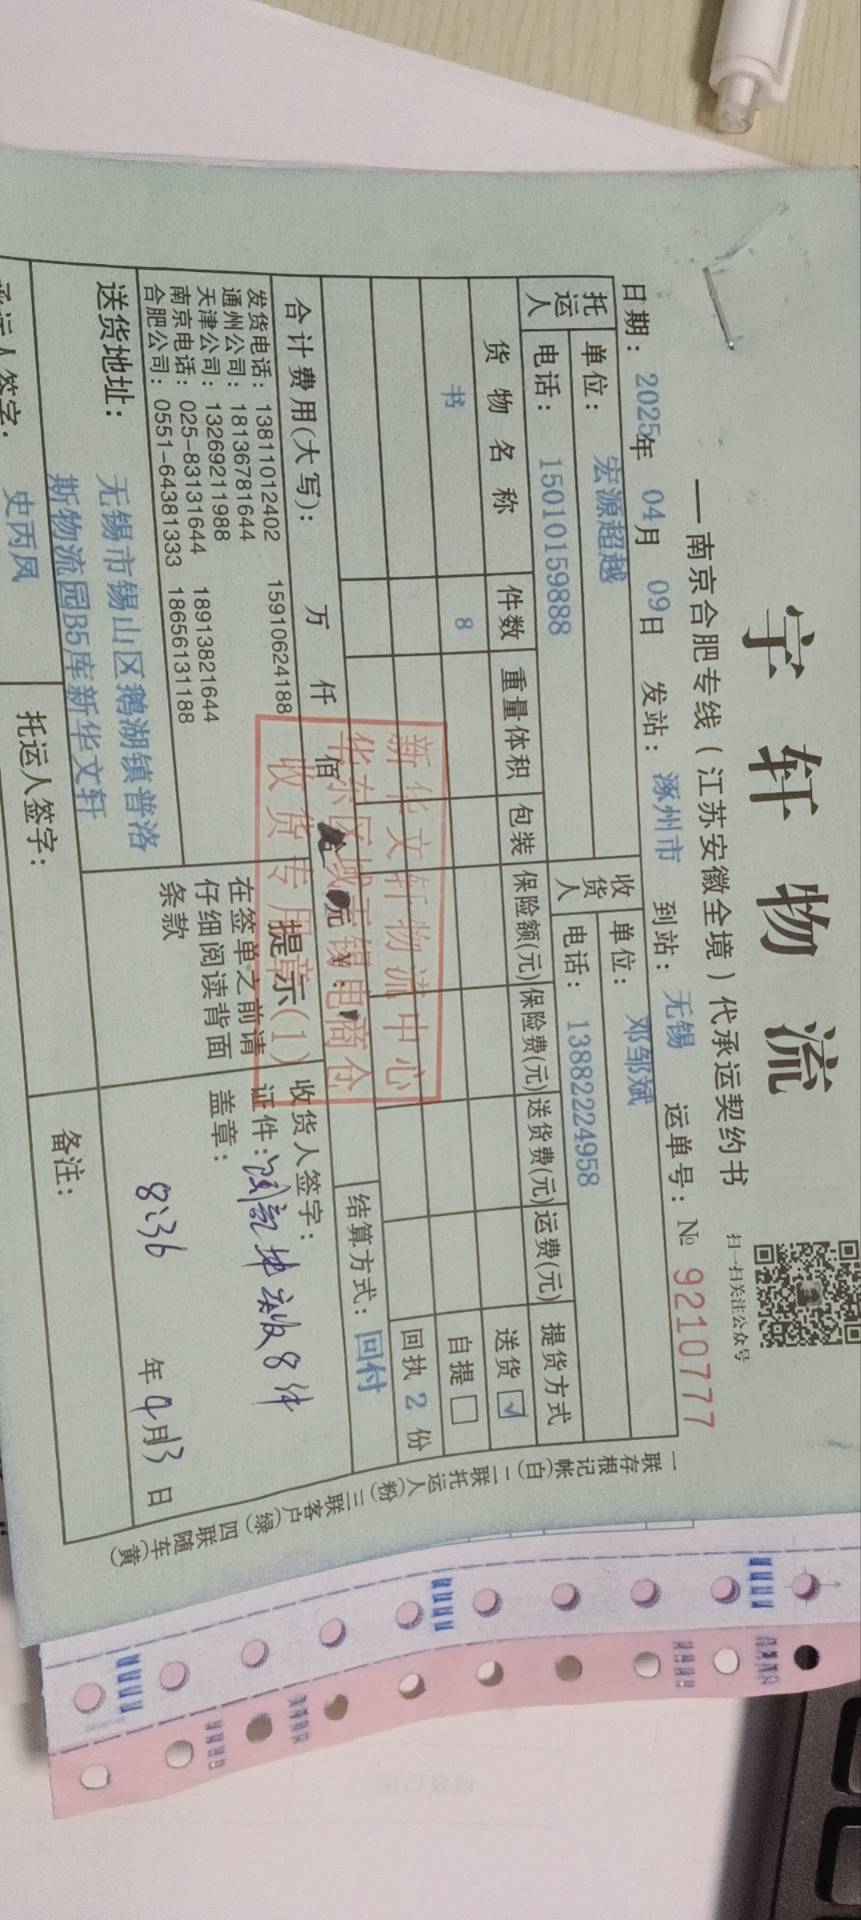 宇轩物流
—南京合肥专线(江苏安徽全境)代承运契约书
扫一扫关注公众号
日期: 2025年 04月 09日 发站: 涿州市 到站: 无锡 运单号: № 9210777
托运人 单位: 宏源超越 收货人 单位: 邓邹斌
电话: 15010159888 电话: 13882224958
货物名称 件数 重量体积 包装 保险额(元) 保险费(元) 送货费(元) 运费(元) 提货方式
书 8 送货 ☑
自提 □
回执 2 份
合计费用(大写): 万 仟 佰 拾 元 ¥: 结算方式: 回付
发货电话: 13811012402 15910624188
通州公司: 18136781644
天津公司: 13269211988
南京电话: 025-83131644 18913821644
合肥公司: 0551-64381333 18656131188
提示
在签单之前请
仔细阅读背面
条款
收货人签字:
证件: 实收8件
盖章:
8:36
年 4月13日
送货地址: 无锡市锡山区鹅湖镇普洛
斯物流园B5库新华文轩
备注:
承运人签字: 史丙凤 托运人签字:
新华文轩物流中心
华东区域无锡电商仓
收货专用章(1)
一联存根记帐(白) 二联托运人(粉) 三联客户(绿) 四联随车(黄)